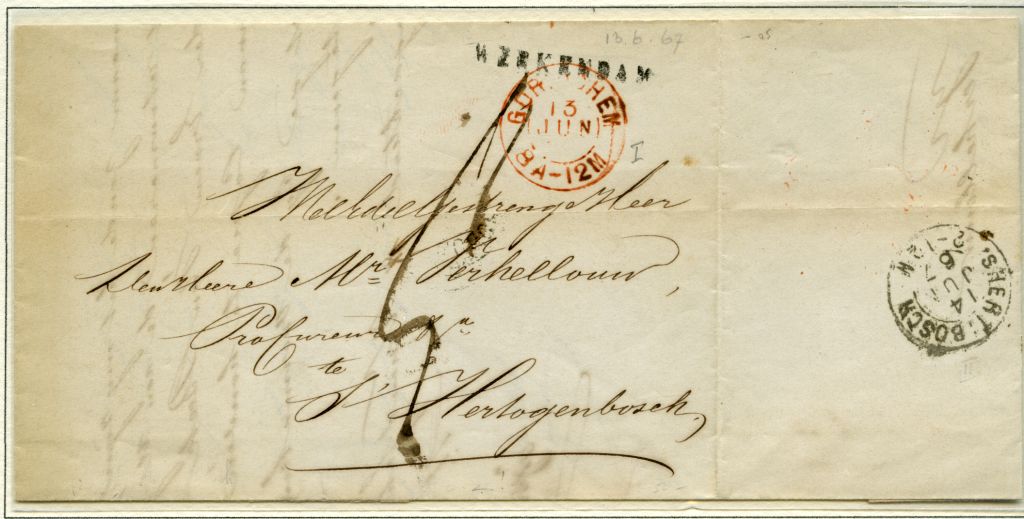 13.6.67
WERKENDAM
GORINCHEM
13
JUN
8A-12M
I
WelEdelGestrenge Heer
den Heere Mr Verhellouw,
Procureur &a
te
S' Hertogenbosch,
'SHERTBOSCH
14
JUN
67
II